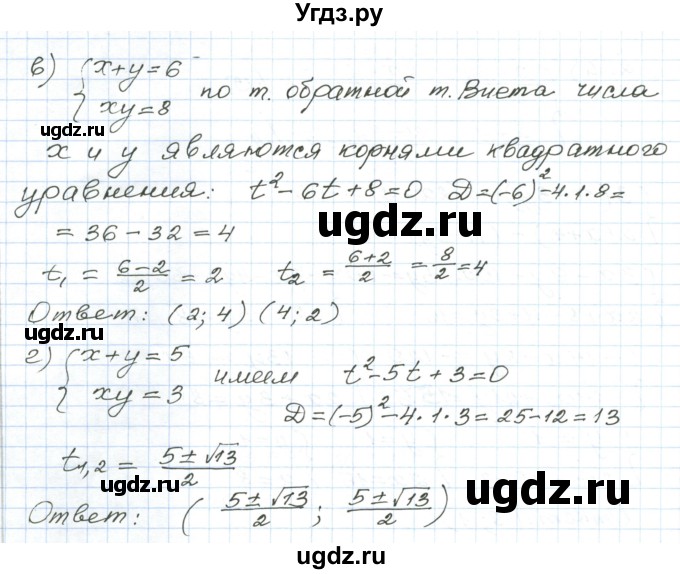 Угдз.ру
в) { x+y=6
xy=8 по т. обратной т. Виета числа
ugdz.ru ugdz.ru
x и y являются корнями квадратного
уравнения: t²-6t+8=0 D=(-6)²-4·1·8=
= 36-32=4
t₁ = (6-2)/2 = 2 t₂ = (6+2)/2 = 8/2 = 4
ugdz.ru
Ответ: (2; 4) (4; 2)
ugdz.ru
г) { x+y=5
xy=3 имеем t²-5t+3=0
D=(-5)²-4·1·3=25-12=13
t₁,₂ = (5±√13)/2
ugdz.ru ugdz.ru
Ответ: ( (5±√13)/2 ; (5±√13)/2 )
ugdz.ru